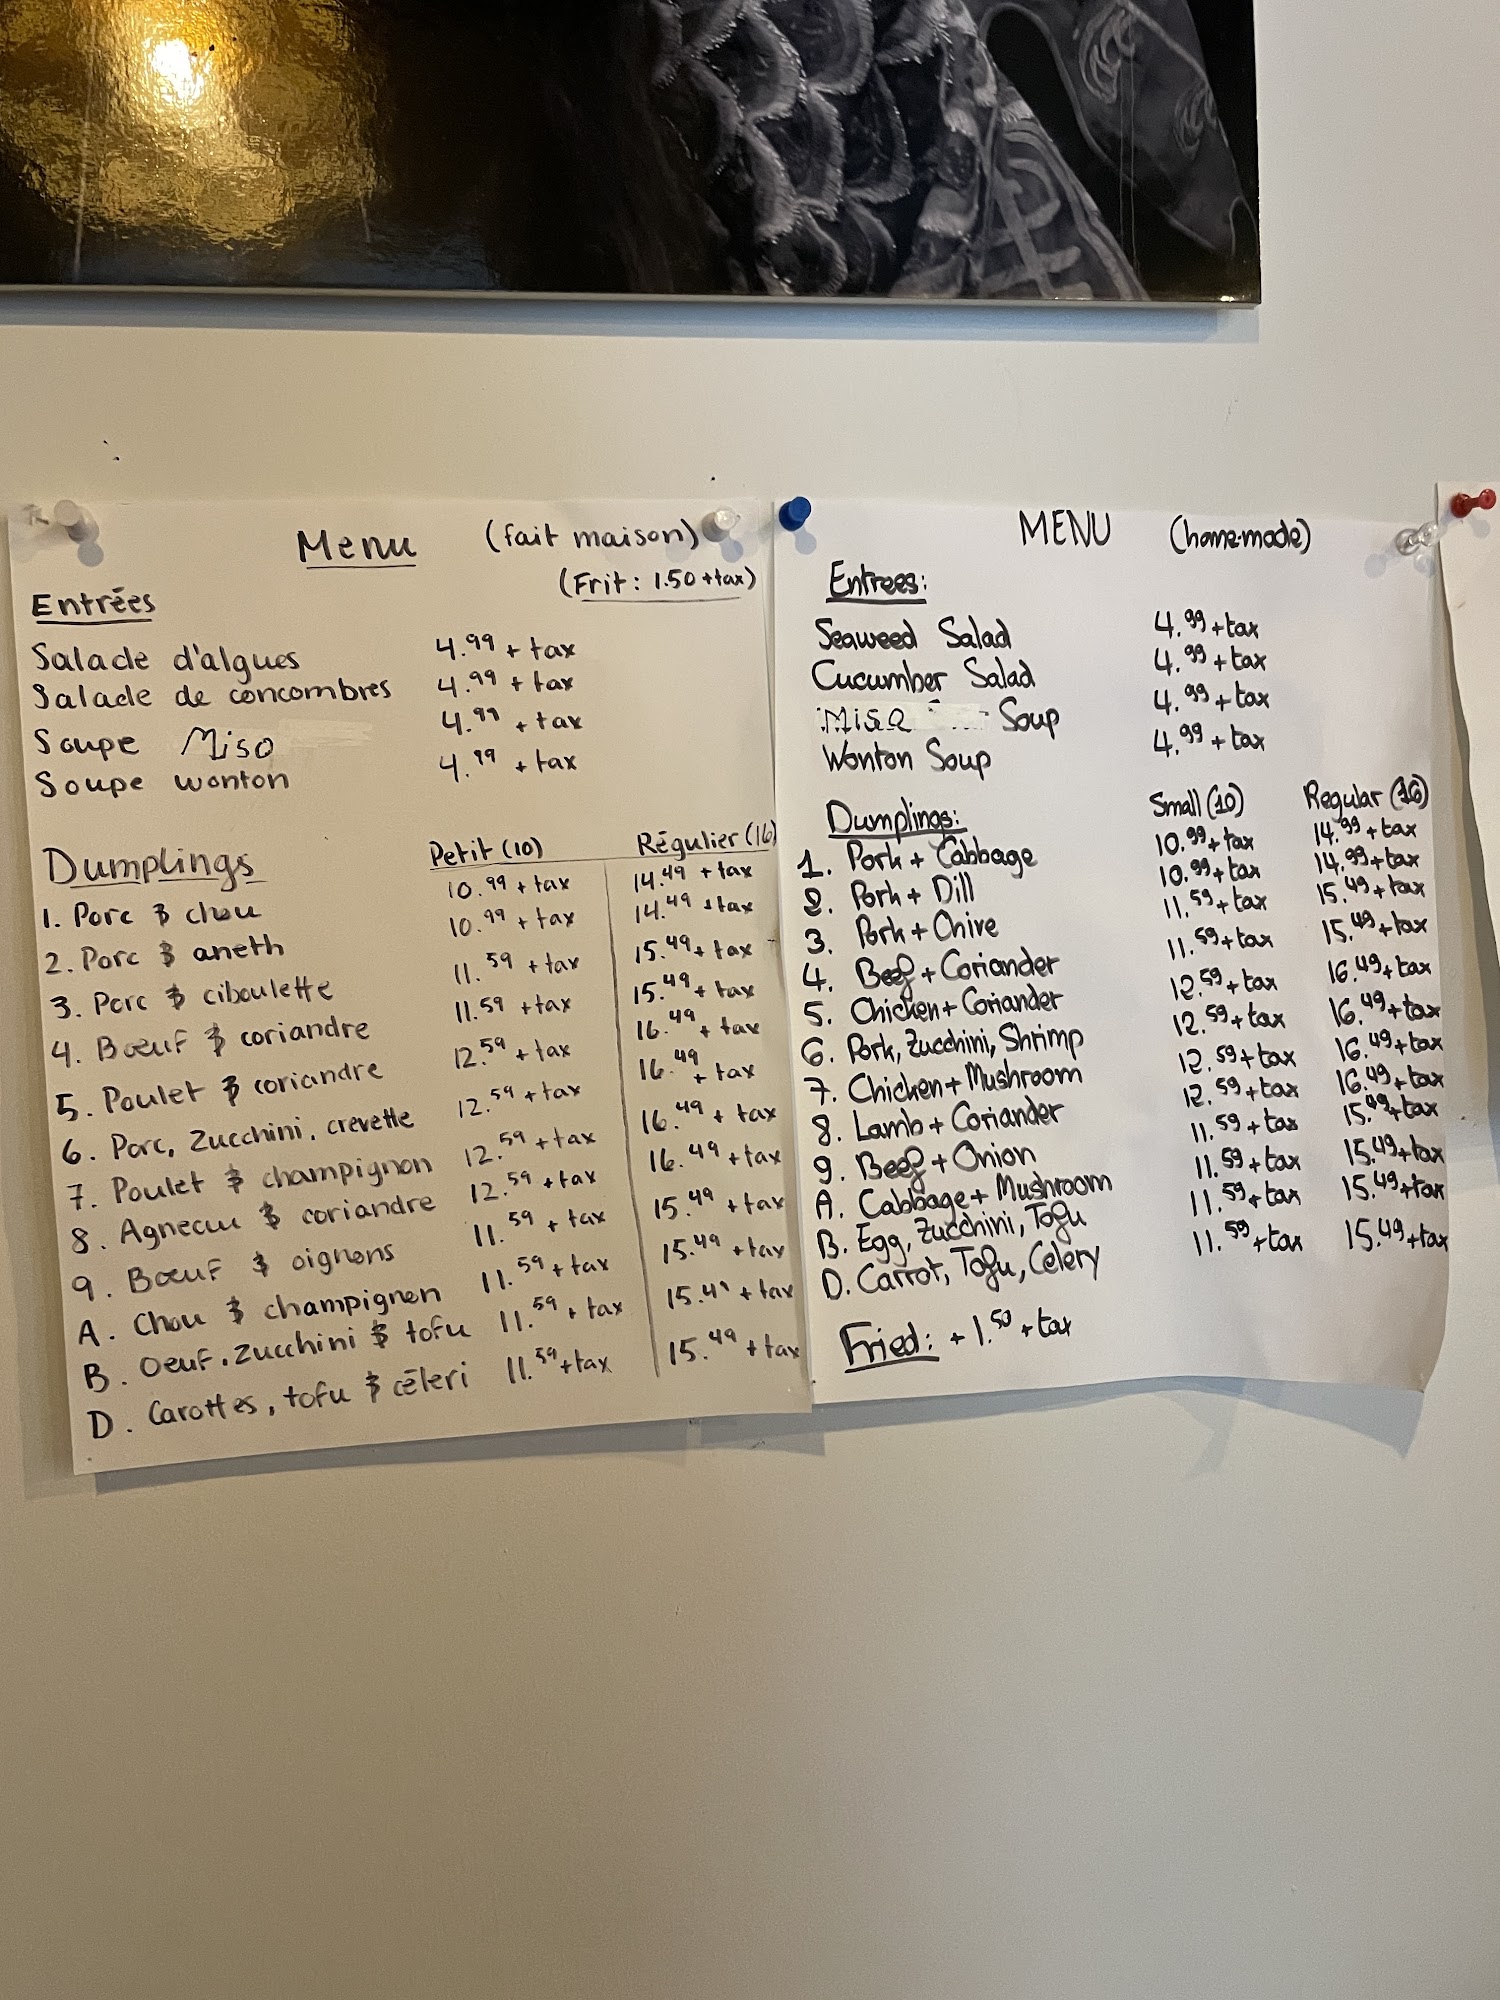 Menu (fait maison)
(Frit: 1.50 + tax)
Entrées
Salade d'algues 4.99 + tax
Salade de concombres 4.99 + tax
Soupe Miso 4.99 + tax
Soupe wonton 4.99 + tax
Dumplings Petit (10) Régulier (16)
1. Porc & chou 10.99 + tax 14.49 + tax
2. Porc & aneth 10.99 + tax 14.49 + tax
3. Porc & ciboulette 11.59 + tax 15.49 + tax
4. Bœuf & coriandre 11.59 + tax 15.49 + tax
5. Poulet & coriandre 12.59 + tax 16.49 + tax
6. Porc, Zucchini, crevette 12.59 + tax 16.49 + tax
7. Poulet & champignon 12.59 + tax 16.49 + tax
8. Agneau & coriandre 12.59 + tax 16.49 + tax
9. Bœuf & oignons 11.59 + tax 15.49 + tax
A. Chou & champignon 11.59 + tax 15.49 + tax
B. Oeuf, Zucchini & tofu 11.59 + tax 15.49 + tax
D. Carottes, tofu & céleri 11.59 + tax 15.49 + tax
MENU (homemade)
Entrees:
Seaweed Salad 4.99 + tax
Cucumber Salad 4.99 + tax
Miso Soup 4.99 + tax
Wonton Soup 4.99 + tax
Dumplings: Small (10) Regular (16)
1. Pork + Cabbage 10.99 + tax 14.99 + tax
2. Pork + Dill 10.99 + tax 14.99 + tax
3. Pork + Chive 11.59 + tax 15.49 + tax
4. Beef + Coriander 11.59 + tax 15.49 + tax
5. Chicken + Coriander 12.59 + tax 16.49 + tax
6. Pork, Zucchini, Shrimp 12.59 + tax 16.49 + tax
7. Chicken + Mushroom 12.59 + tax 16.49 + tax
8. Lamb + Coriander 12.59 + tax 16.49 + tax
9. Beef + Onion 11.59 + tax 15.49 + tax
A. Cabbage + Mushroom 11.59 + tax 15.49 + tax
B. Egg, Zucchini, Tofu 11.59 + tax 15.49 + tax
D. Carrot, Tofu, Celery 11.59 + tax 15.49 + tax
Fried: + 1.50 + tax